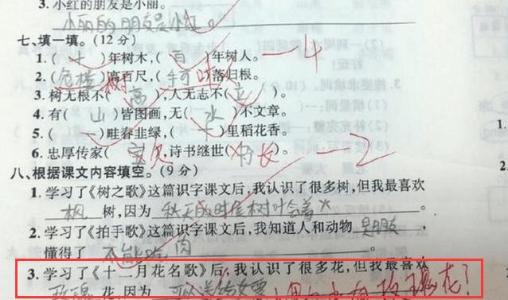 3. 小红的朋友是小丽。
小丽的朋友是小红。
七、填一填。(12分)
1. (十)年树木,(百)年树人。 -4
2. (危楼)高百尺,( )落归根。
3. 树无根不(高),人无志不(立)。
4. 有(山)皆图画,无(水)不文章。
5. (一)畦春韭绿,( )里稻花香。
6. 忠厚传家(宝),诗书继世(长)。
八、根据课文内容填空。(9分) -2
1. 学习了《树之歌》这篇识字课文后,我认识了很多树,但我最喜欢
枫 树,因为 秋天
2. 学习了《拍手歌》这篇识字课文后,我知道人和动物 是朋友
懂得了 不能吃肉
3. 学习了《十二月花名歌》后,我认识了很多花,但我最喜欢
玫瑰 花,因为 可以送给 玫瑰花!